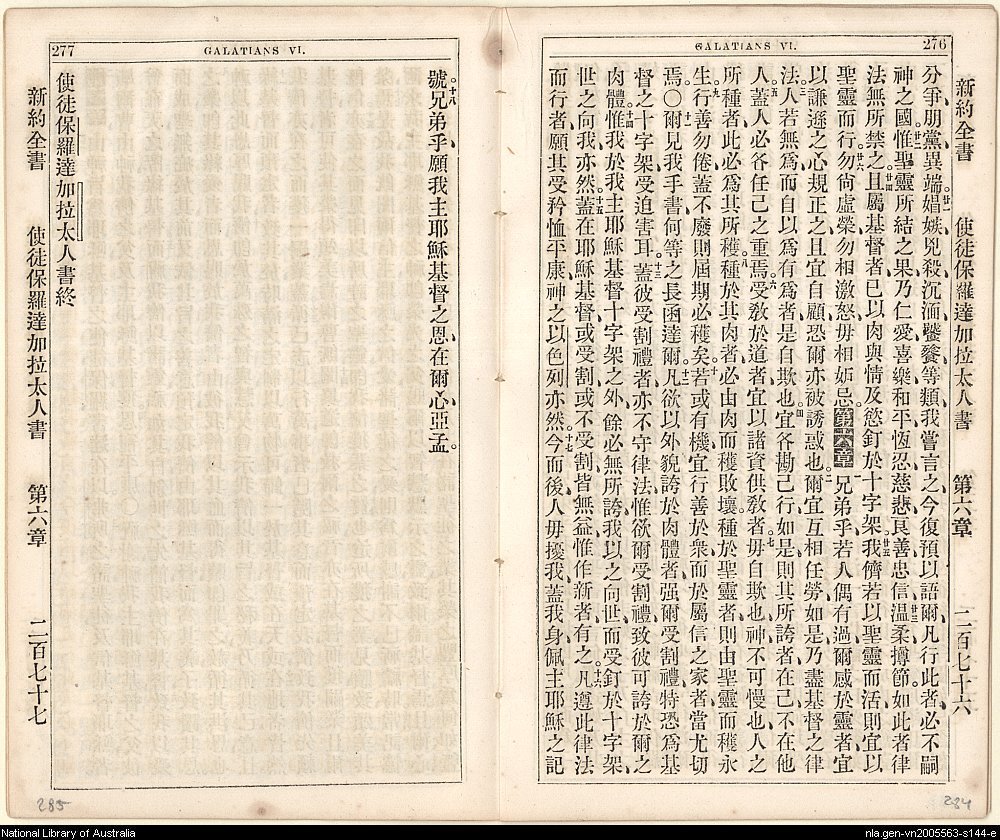 276
GALATIANS VI.
新約全書 使徒保羅達加拉太人書 第六章 二百七十六
分爭朋黨異端廿一娼嫉兇殺沉湎饕餮等類我嘗言之今復預以語爾凡行此者必不嗣
神之國廿二惟聖靈所結之果乃仁愛喜樂和平恆忍慈悲良善忠信廿三温柔撙節如此者律
法無所禁之廿四且屬基督者已以肉與情及慾釘於十字架廿五我儕若以聖靈而活則宜以
聖靈而行廿六勿尙虛榮勿相激怒毋相妒忌第六章一兄弟乎若人偶有過爾感於靈者宜
以謙遜之心規正之且宜自顧恐爾亦被誘惑也二爾宜互相任勞如是乃盡基督之律
法三人若無爲而自以爲有爲者是自欺也四宜各勘己行如是則其所誇者在己不在他
人五蓋人必各任己之重焉六受教於道者宜以諸資供教者七毋自欺也神不可慢也人之
所種者此必爲其所穫八種於其肉者必由肉而穫敗壞種於聖靈者則由聖靈而穫永
生九行善勿倦蓋不廢則屆期必穫矣十若或有機宜行善於衆而於屬信之家者當尤切
焉〇十一爾見我手書何等之長函達爾十二凡欲以外貌誇於肉體者强爾受割禮特恐爲基
督之十字架受迫害耳十三蓋彼受割禮者亦不守律法惟欲爾受割禮致彼可誇於爾之
肉體十四惟我於我主耶穌基督十字架之外餘必無所誇我以之向世而受釘於十字架
世之向我亦然十五蓋在耶穌基督或受割或不受割皆無益惟作新者有之十六凡遵此律法
而行者願其受矜恤平康神之以色列亦然十七今而後人毋擾我蓋我身佩主耶穌之記
284
277
GALATIANS VI.
號十八兄弟乎願我主耶穌基督之恩在爾心亞孟
使徒保羅達加拉太人書終
新約全書 使徒保羅達加拉太人書 第六章 二百七十七
285
National Library of Australia
nla.gen-vn2005563-s144-e